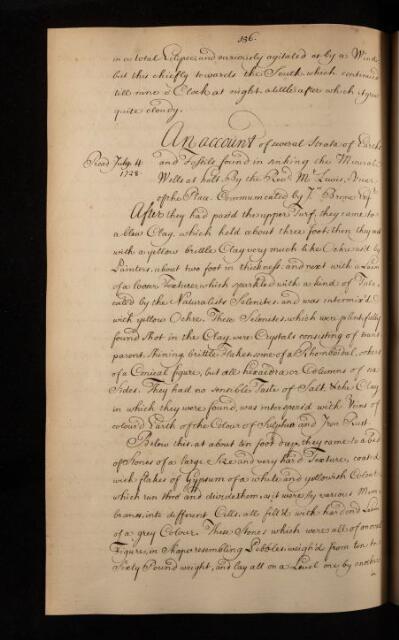 336.
in a total Eclipse; and variously agitated as by a Wind
but this chiefly towards the South, which continued
till nine o'Clock at night, a little after which it grew
quite cloudy.
An account of several Strata of Earths
Read July 4. 1728.
and Fossils found in sinking the Mineral
Wells at holt. By the Revd. Mr. Lewis,
of the Place. Communicated by Browne Esqr.
After they had pass'd the upper Turf, they came to
a blew Clay, which held about three foot; then they met
with a yellow brittle Clay very much like Ochre used by
Painters, about two foot in thickness; and next with a Loam
of a looser Texture, which sparkled with a kind of Talc,
called by the Naturalists Selenites, and was intermix'd
with yellow Ochre. These Selenites, which were plentifully
found Shot in the Clay, were Crystals consisting of trans
parent, shining brittle Flakes, some of a Rhomboidal, others
of a Conical figure, but all hexaedra or Columns of six
Sides. They had no sensible Taste of Salt, & the Clay
in which they were found, was interspers'd with Veins of
colour'd Earth of the Colour of Sulphur and Iron Rust.
Below this, at about ten foot deep, they came to a bed
of Stones of a large Size and very hard Texture, coated
with flakes of Gypsum of a white and yellowish Colour
which run thro' and divided them, as it were by various Mem
branes, into different Cells, all fill'd with hard Loam
of a grey Colour. These Stones which were all of an oval
Figure, in Shape resembling Pebbles, weigh'd from ten to
Sixty Pound weight, and lay all on a Level one by another
in